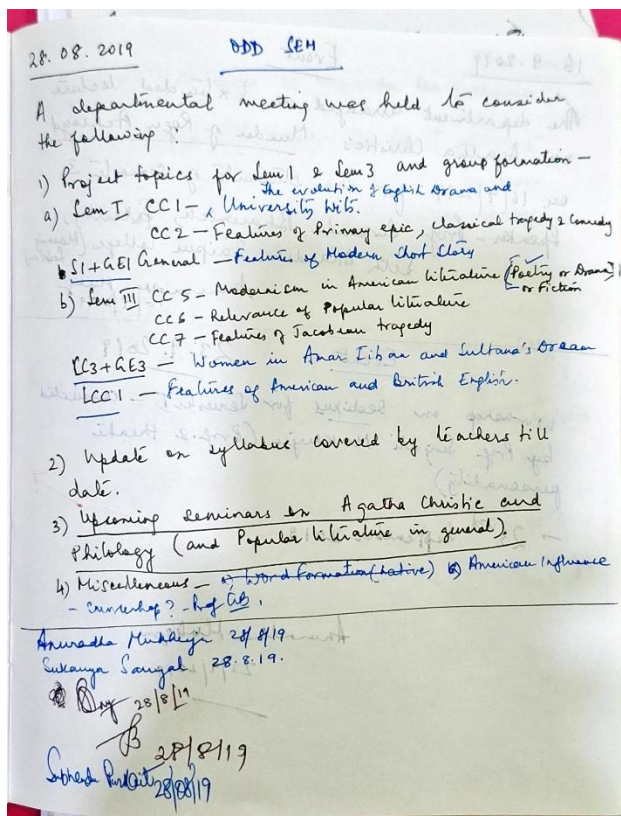 28.08.2019 ODD SEM
A departmental meeting was held to consider
the following :
1) Project topics for Sem 1 & Sem 3 and group formation –
a) Sem I CC1 – The evolution of English Drama and
University Wits.
CC2 – Features of Primary epic, classical tragedy & Comedy
S1+GE1 General – Features of Modern Short Story
b) Sem III CC5 – Modernism in American literature (Poetry or Drama)
or Fiction
CC6 – Relevance of Popular literature
CC7 – Features of Jacobean tragedy
CC3+GE3 – Women in Amar Jiban and Sultana's Dream
LCC1 – Features of American and British English.
2) Update on syllabus covered by teachers till
date.
3) Upcoming seminars on Agatha Christie and
Philology (and Popular literature in general).
4) Miscellaneous – a) Word Formation (Native) b) American Influence
– ? – Prof GB.
Anuradha Mukherji 28/8/19
Sukanya Sanyal 28.8.19.
28/8/19
28/8/19
28/08/19